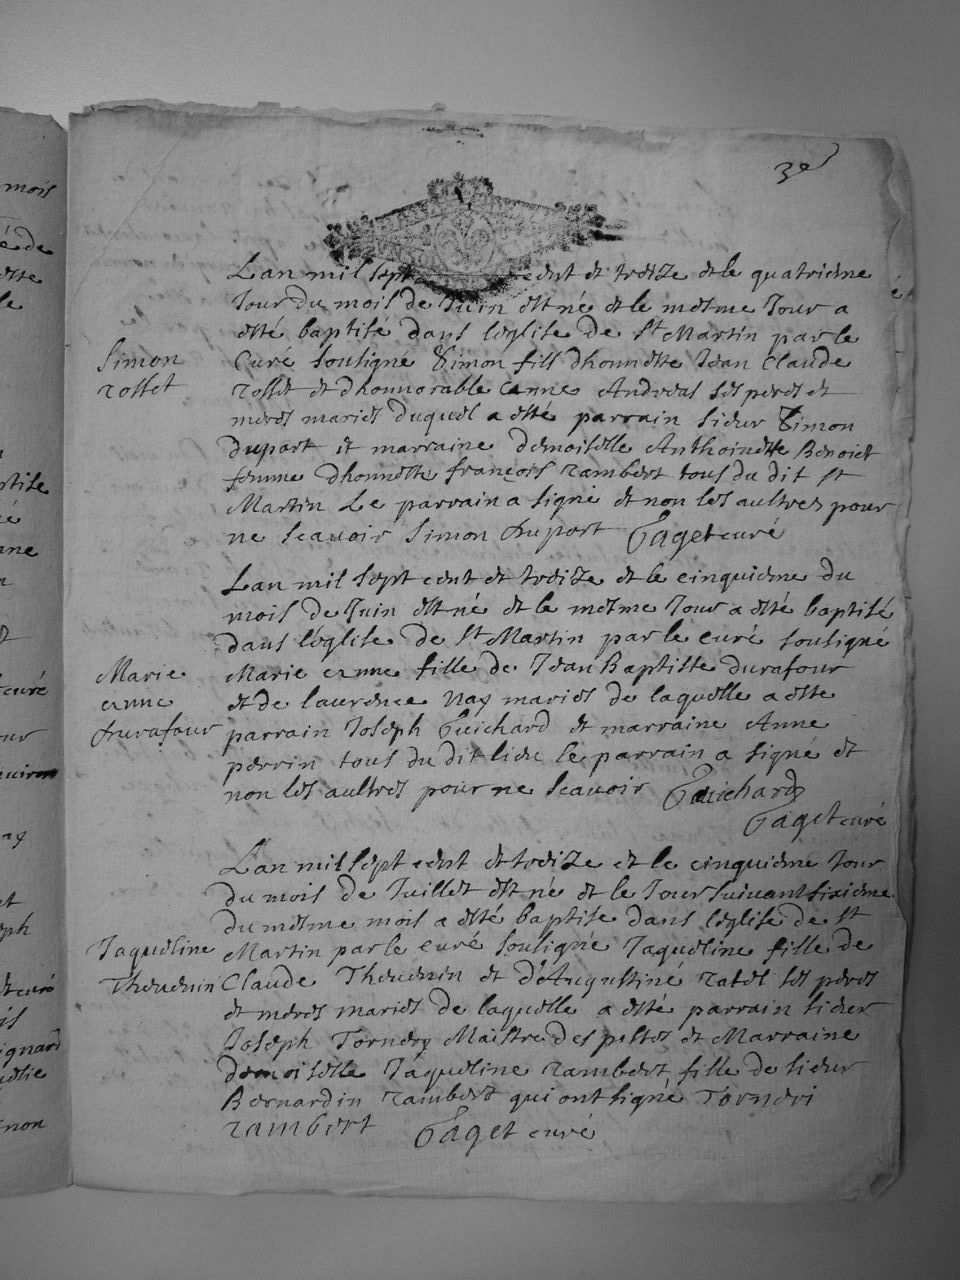 3e
Lan mil sept cent et treize et le quatrieme
Jour du mois de Juin est né et le mesme Jour a
esté baptisé dans leglise de St Martin par le
Simon
rosset
Curé sousigné Simon fils dhonneste Jean Claude
rosset et dhonnorable anne Andreas ses peres et
meres maries duquel a esté parrain sieur Simon
duport et marraine demoiselle Anthoinette Benoict
femme dhonneste françois rambert tous du dit St
Martin Le parrain a signé et non les aultres pour
ne scauoir Simon duport Paget curé
Lan mil sept cent et treize et le cinquieme du
mois de Juin est né et le mesme Jour a esté baptisé
dans léglise de St Martin par le curé sousigné
Marie
anne
durafour
Marie anne fille de Jean Baptiste durafour
et de laurence Nay maries de laquelle a este
parrain Joseph Guichard et marraine Anne
perrin tous du dit lieu le parrain a signé et
non les aultres pour ne scauoir Guichard
Paget curé
Lan mil sept cent et treize et le cinquieme Jour
du mois de Juillet est né et le Jour suiuant sixieme
du mesme mois a esté baptisé dans leglise de St
Jaqueline
Theuenin
Martin par le curé sousigné Jaqueline fille de
Claude Theuenin et d'Augustine ratel ses peres
et meres maries de laquelle a esté parrain sieur
Joseph Tornery Maistre des postes et Marraine
demoiselle Jaqueline rambert fille de sieur
Bernardin rambert qui ont signé Torneri
rambert Paget curé